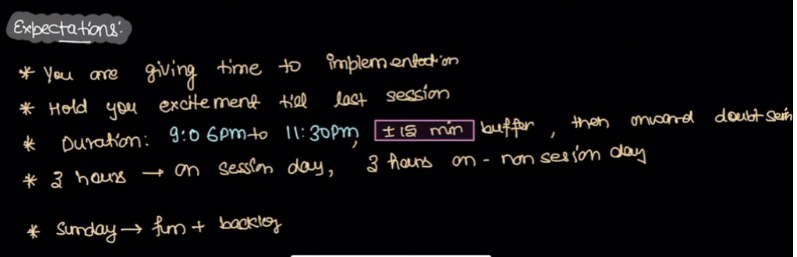 Expectations:
* You are giving time to implementation
* Hold you excitement till last session
* Duration: 9:06pm to 11:30pm, ±15 min buffer, then onward doubt
* 3 hours → on session day, 3 hours on - non session day
* Sunday → fun + backlog